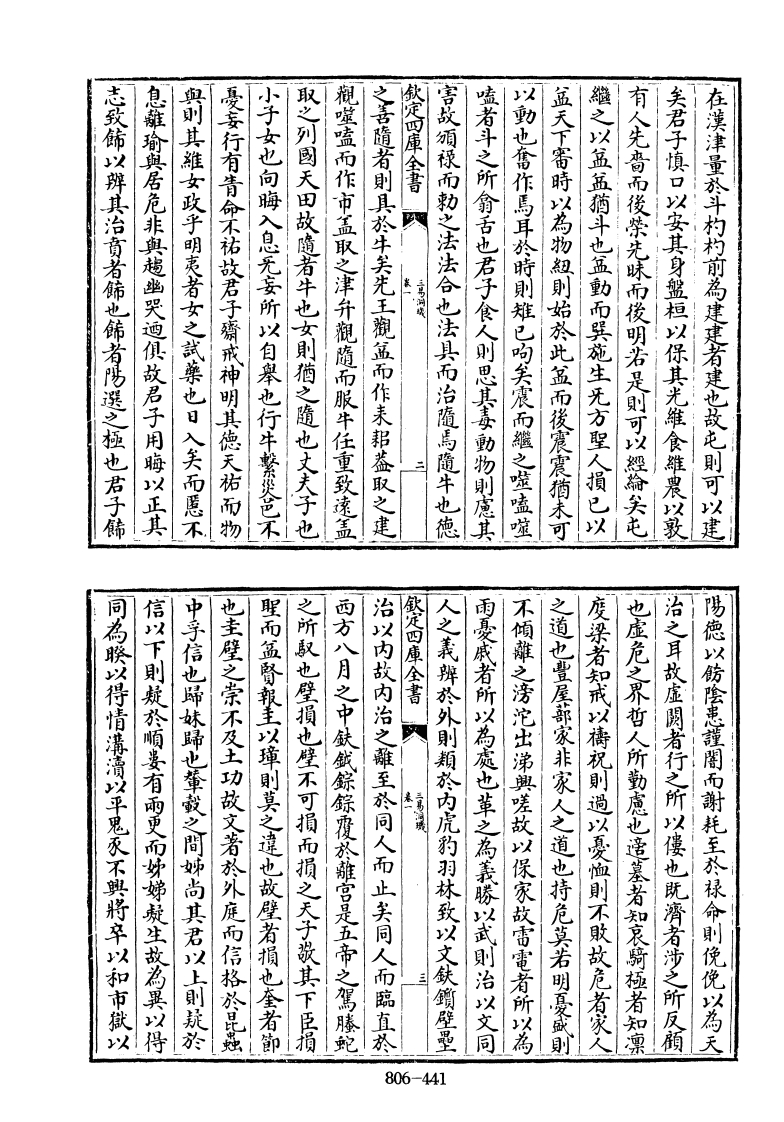 在漢津量於斗杓杓前為建建者建也故屯則可以建
矣君子慎口以安其身盤桓以保其光維食維農以敦
有人先嗇而後榮先昧而後明若是則可以經綸矣屯
繼之以益益猶斗也益動而巽施生无方聖人損已以
益天下審時以為物紐則始於此益而後震震猶未可
以動也奮作馬耳於時則雉已呴矣震而繼之噬嗑噬
嗑者斗之所翕舌也君子食人則思其毒動物則慮其
害故頒祿而勅之法法合也法具而治隨焉隨牛也德
欽定四庫全書
三易洞璣
卷一
二
之善隨者則具於牛矣先王觀益而作耒耜蓋取之建
觀噬嗑而作市蓋取之津弁觀隨而服牛任重致遠蓋
取之列國天田故隨者牛也女則猶之隨也丈夫子也
小子女也向晦入息无妄所以自舉也行牛繫災邑不
憂妄行有眚命不祐故君子齋戒神明其德天祐而物
與則其維女政乎明夷者女之試藥也日入矣而慝不
息離瑜與居危非與趨幽哭迺俱故君子用晦以正其
志致飾以辨其治賁者飾也飾者陽選之極也君子飾
陽德以飭陰慝謹闇而謝耗至於祿命則俛俛以為天
治之耳故虛闕者行之所以僂也既濟者涉之所反顧
也虛危之界哲人所勤慮也造墓者知哀騎極者知凛
度梁者知戒以禱祝則過以憂恤則不敗故危者家人
之道也豐屋蔀家非家人之道也持危莫若明憂戚則
不傾離之滂沱出涕興嗟故以保家故雷電者所以為
雨憂戚者所以為處也革之為義勝以武則治以文同
人之義辨於外則類於内虎豹羽林致以文鈇鑕壁壘
欽定四庫全書
三易洞璣
卷一
三
治以内故内治之離至於同人而止矣同人而臨直於
西方八月之中鈇鉞錝錝覆於離宫是五帝之駕螣蛇
之所馭也壁損也壁不可損而損之天子敬其下臣損
聖而益賢報圭以璋則莫之違也故壁者損也奎者節
也圭璧之崇不及土功故文著於外庭而信格於昆蟲
中孚信也歸妹歸也輦載之間姊尚其君以上則疑於
信以下則疑於順婁有兩更而姊娣凝生故為異以得
同為睽以得情溝瀆以平鬼豕不興將卒以和市獄以
806-441